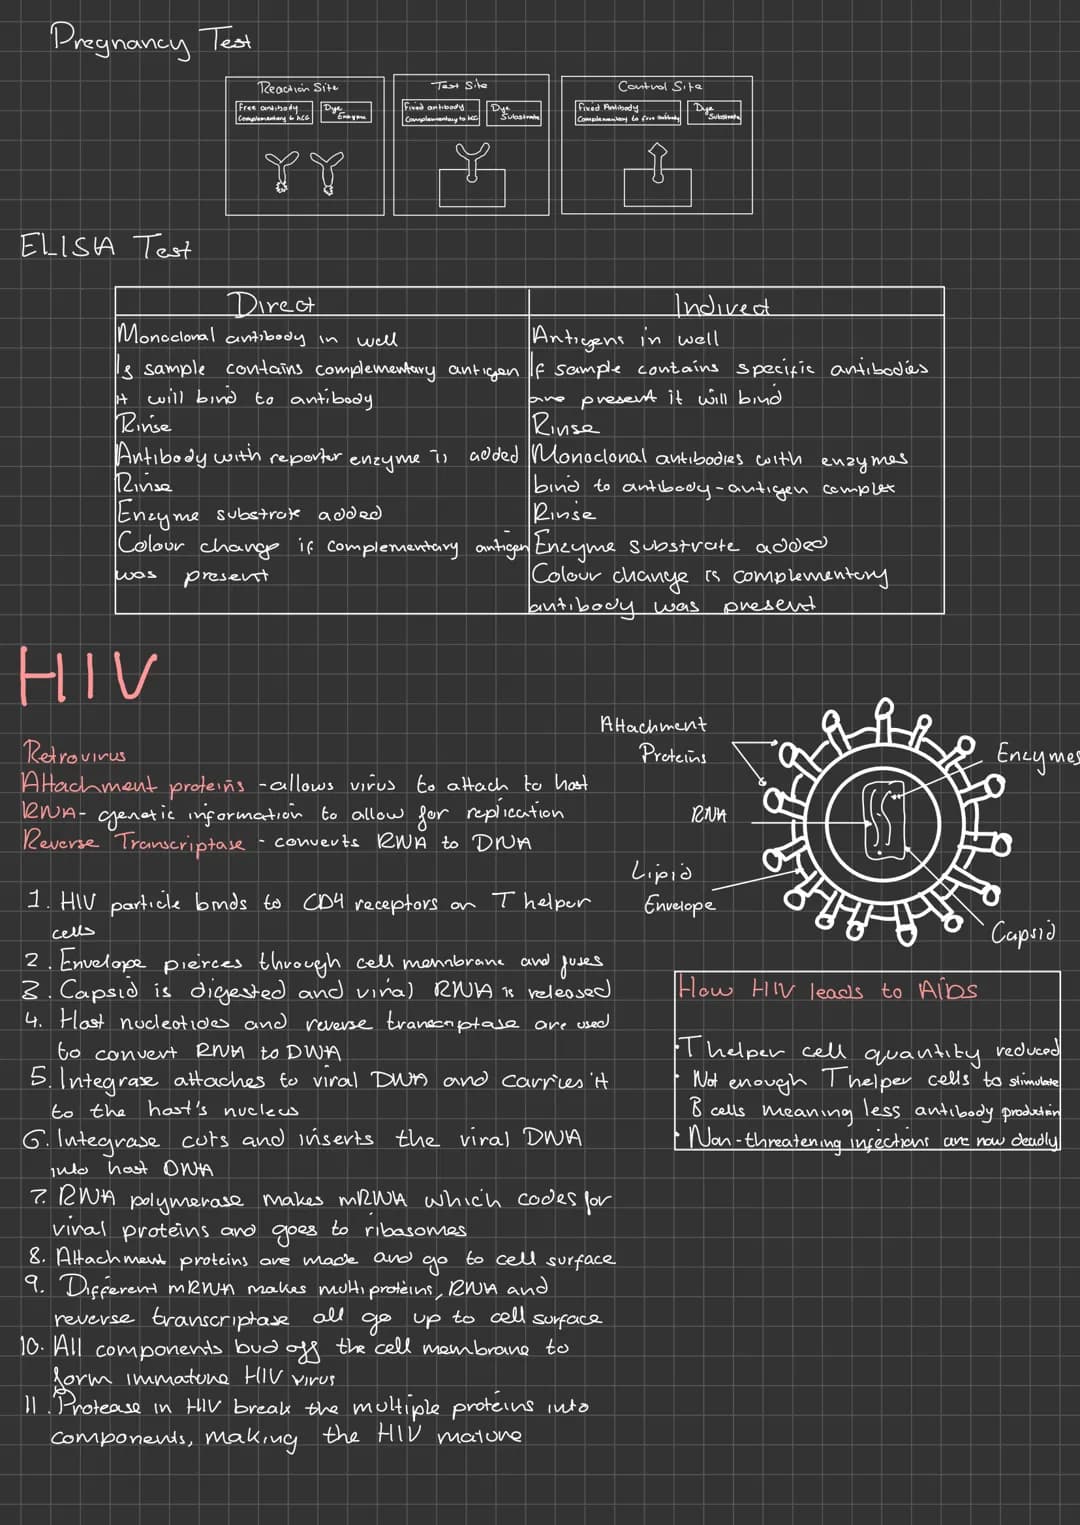 Pregnancy Test
Reaction Site
Free antibody
Complementary to hCG
Dye
Enzyme
Test Site
Fixed antibody
Complementary to hCG
Dye
Substrate
Control Site
Fixed Antibody
Complementary to free antibody
Dye
Substrate
ELISA Test
Direct
Monoclonal antibody in well
If sample contains complementary antigen
it will bind to antibody
Rinse
Antibody with reporter enzyme is added
Rinse
Enzyme substrate added
Colour change if complementary antigen
was present
Indirect
Antigens in well
If sample contains specific antibodies
are present it will bind
Rinse
Monoclonal antibodies with enzymes
bind to antibody-antigen complex
Rinse
Enzyme substrate added
Colour change is complementary
antibody was present
HIV
Retrovirus
Attachment proteins - allows virus to attach to host
RNA- genetic information to allow for replication
Reverse Transcriptase - converts RNA to DNA
Attachment
Proteins
RNA
Lipid
Envelope
Enzymes
Capsid
1. HIV particle binds to CD4 receptors on T helper
cells
2. Envelope pierces through cell membrane and fuses
3. Capsid is digested and viral RNA is released
4. Host nucleotides and reverse transcriptase are used
to convert RNA to DNA
5. Integrase attaches to viral DNA and carries it
to the host's nucleus
6. Integrase cuts and inserts the viral DNA
into host DNA
7. RNA polymerase makes mRNA which codes for
viral proteins and goes to ribosomes
8. Attachment proteins are made and go to cell surface
9. Different mRNA makes multi proteins, RNA and
reverse transcriptase all go up to cell surface
10. All components bud off the cell membrane to
form immature HIV virus
11. Protease in HIV break the multiple proteins into
components, making the HIV mature
How HIV leads to AIDS
· T helper cell quantity reduced
· Not enough T helper cells to stimulate
B cells meaning less antibody production
· Non-threatening infections are now deadly